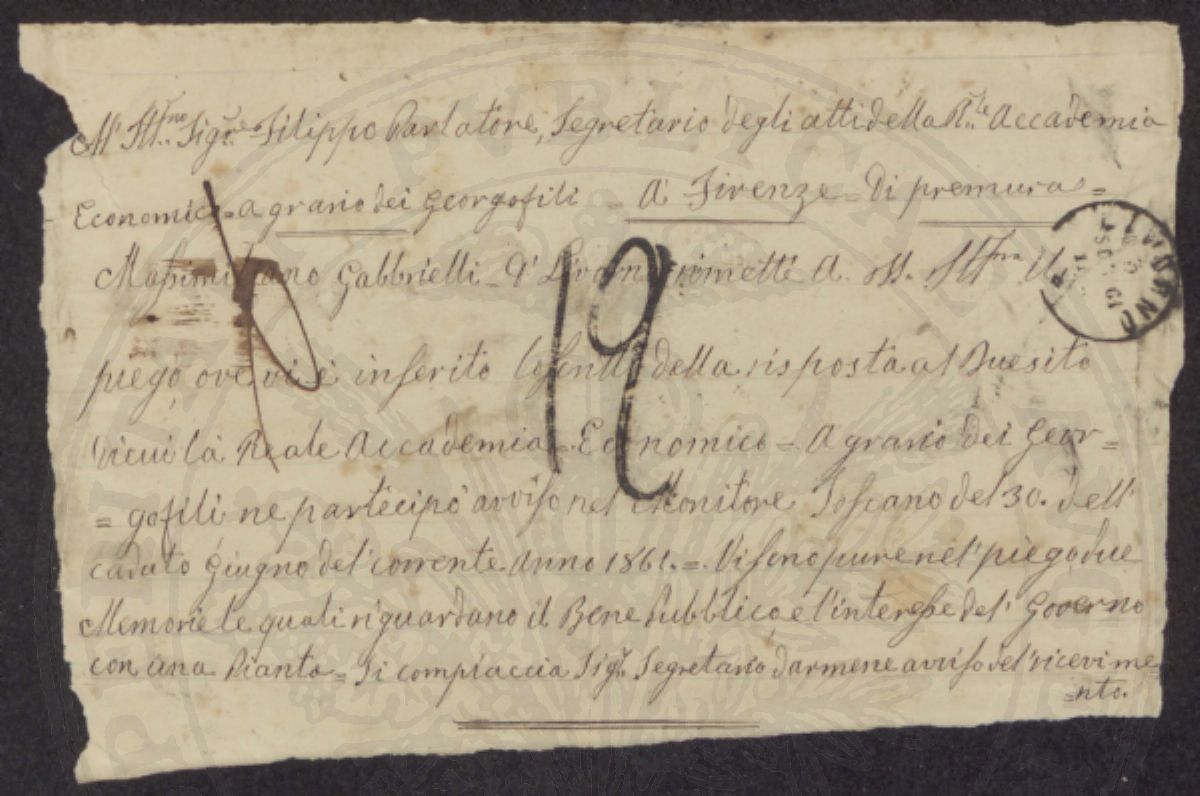 All' Ill.mo Sig.re Filippo Parlatore, Segretario degli atti della R.le Accademia
Economico = agrario dei Georgofili = A Firenze = Di premura =
Massimiliano Gabbrielli = Di Livorno rimette A. SS. Ill.ma Il
piego, ove vi è inserito della risposta al Quesito
di cui la Reale Accademia = Economico = Agrario dei Geor-
= gofili ne partecipò avviso nel Monitore Toscano del 30. dell'
caduto Giugno del' corrente Anno 1861. = Vi sono pure nel' piego due
Memorie le quali riguardano il Bene Pubblico, e l'interesse del' Governo
con una Pianta = Si compiaccia Sig.r Segretario darmene avviso del' ricevime
= nto.
19
LIVORNO
PUBLICA